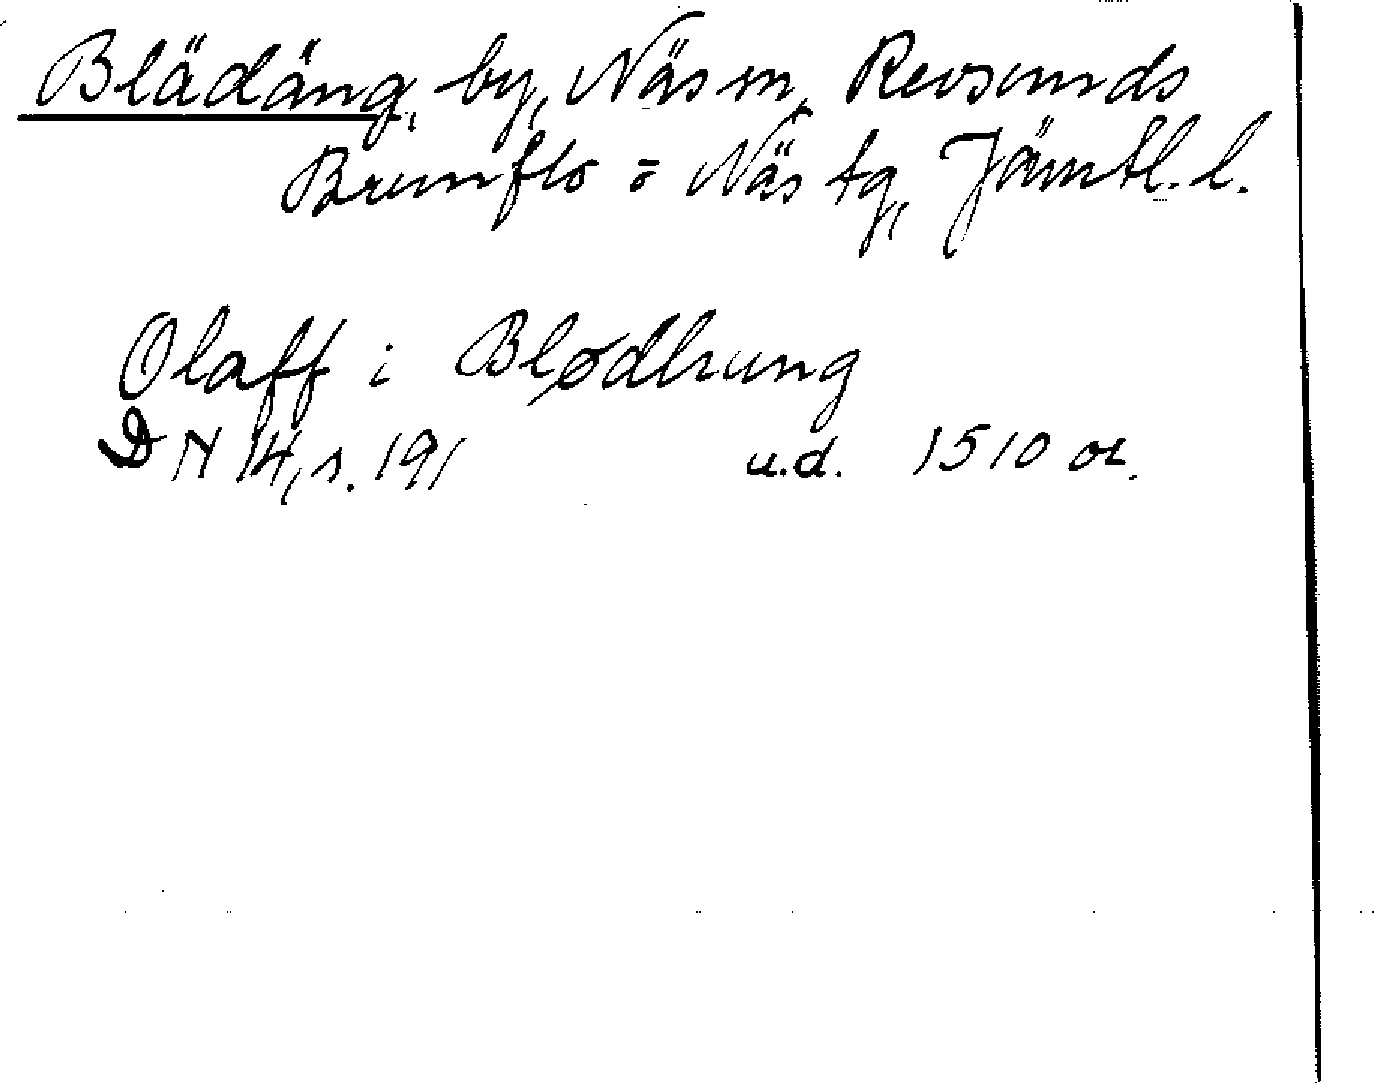 Blädäng, by, Näs sn, Revsunds
Brunflo o Näs tg, Jämtl. l.
Olaff i Blødhung
DN 14, s. 191 u.d. 1510 or.